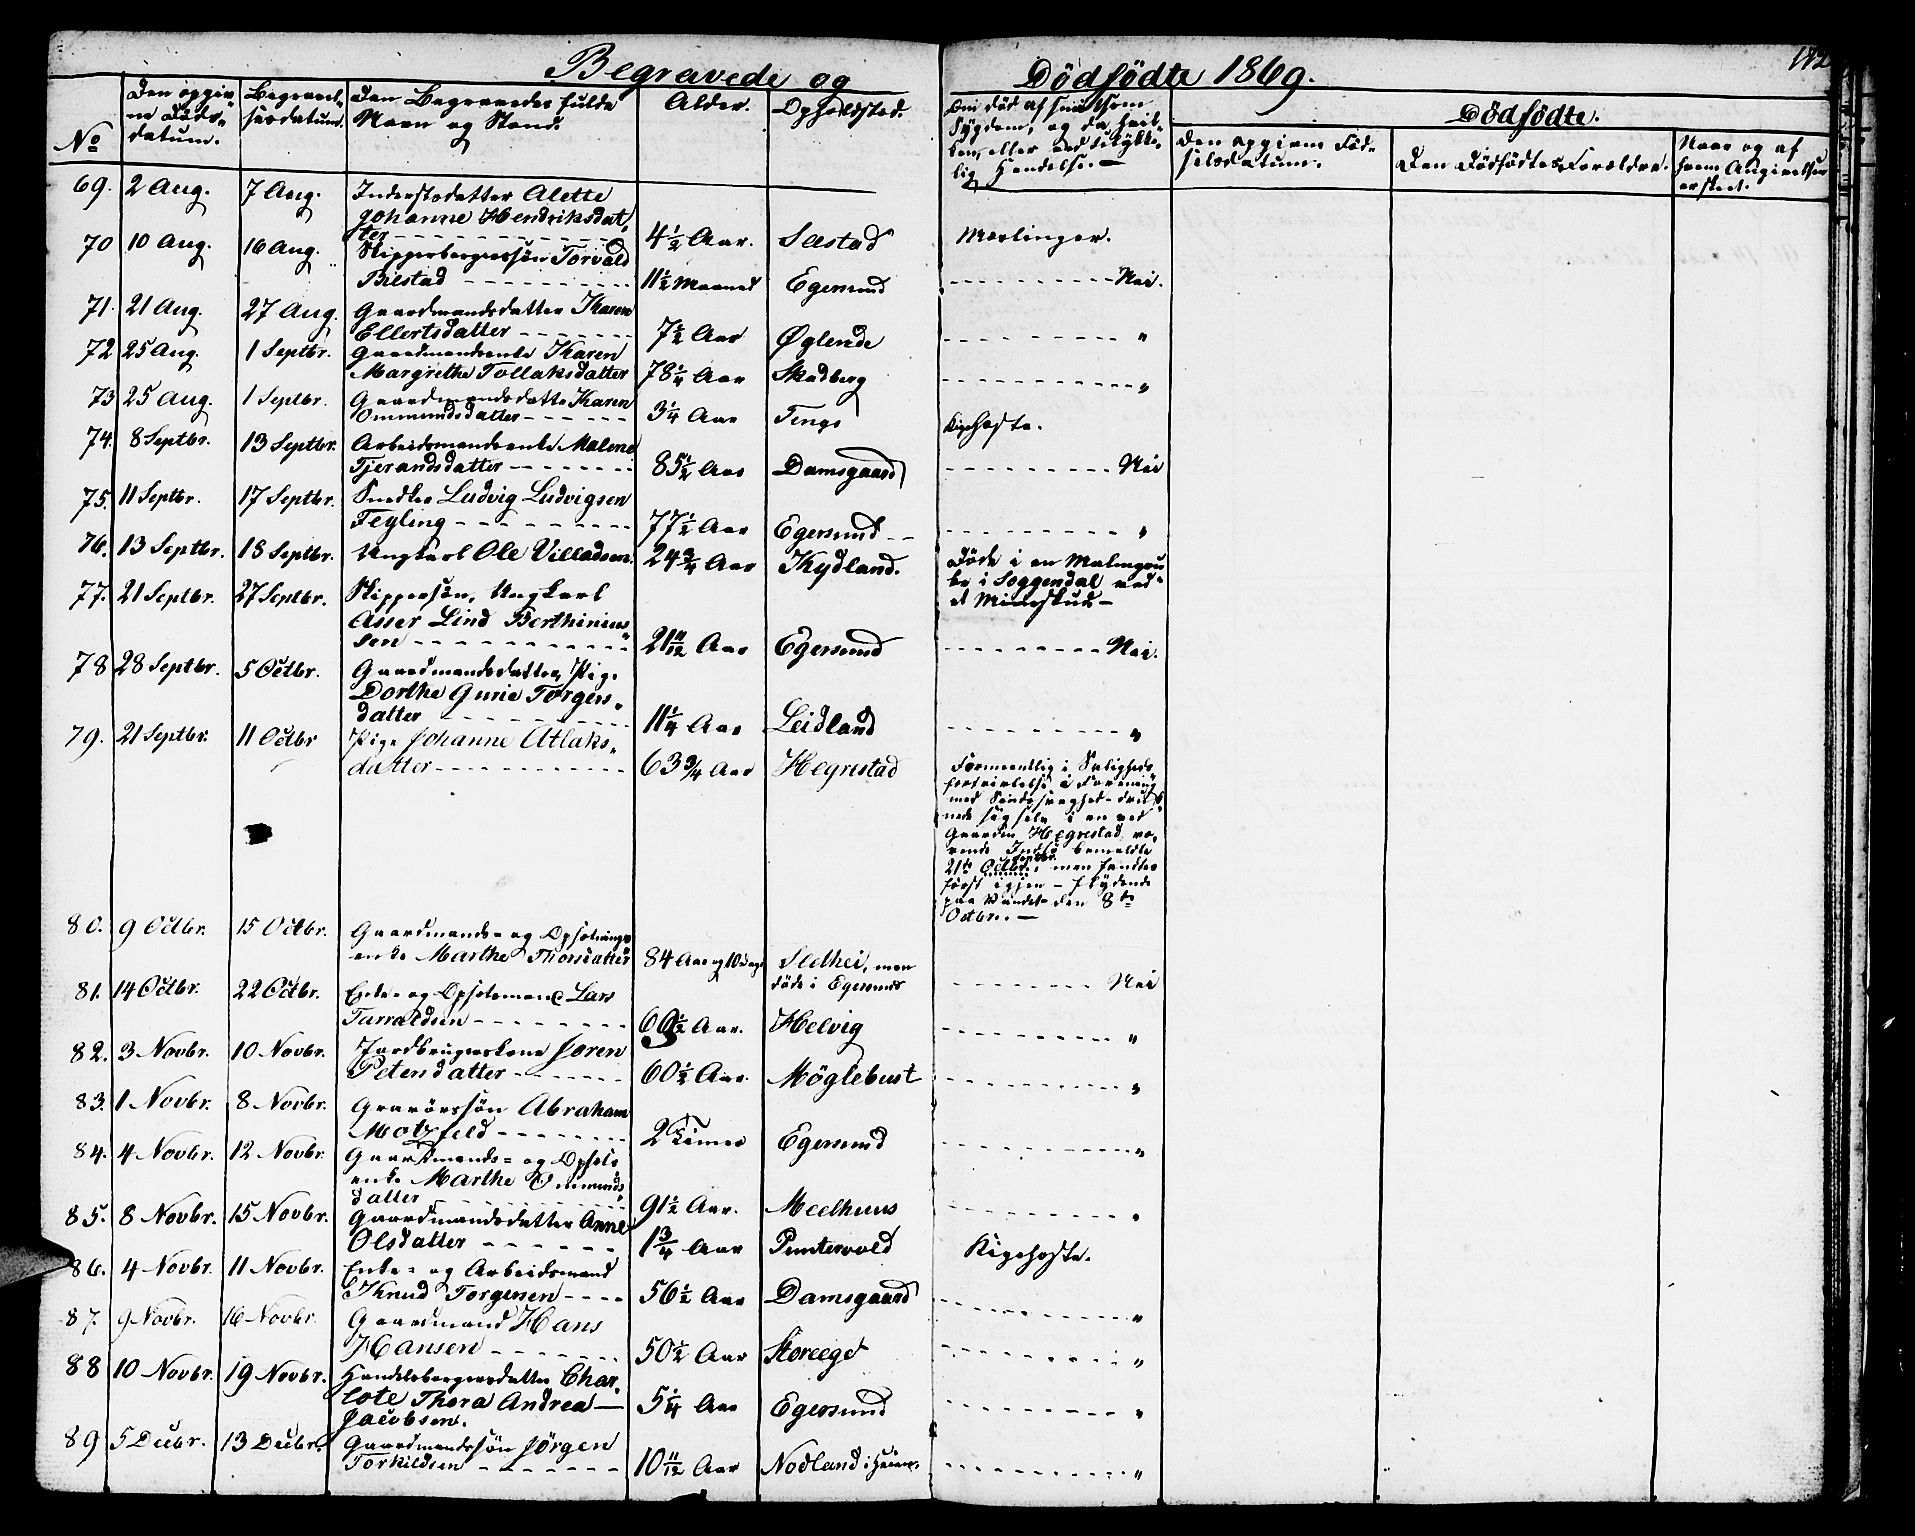 Begravede og Dödfödte 1869.
182
No
Den opgiv-
ne Döds-
datum.
Begravel-
sesdatum.
Den Begravedes fulde
Navn og Stand.
Alder.
Opholdsted.
Om död af smitsom
Sygdom, og da hvil-
ken, eller ved ulykke-
lig Hendelse.—
Dödfödte.
Den opgivne Föd-
selsdatum.
Den Dödfödtes Forældre.
Naar og af
hvem Angivelsen
er skeet.
69. 2 Aug. 7 Aug. Inderstsdatter Alette
Johanne Hendriksdat-
ter 4½ Aar. Sæstad Mæslinger.
70 10 Aug. 16 Aug. Skipperborgerssön Torvald
Bilstad 11½ Maaned Egersund Nei.
71. 21 Aug. 27 Aug. Gaardmandsdatter Karen
Ellertsdatter 7½ Aar Øglende "
72 25 Aug. 1 Septbr. Gaardmandsenke Karen
Margrethe Tollaksdatter 78¼ Aar Skadberg "
73 25 Aug. 1 Septbr. Gaardmandsdatter Karen
Ommundsdatter 3¼ Aar Tengs Kighoste.
74. 8 Septbr. 13 Septbr. Arbeidsmandsenke Malene
Tjerandsdatter 85½ Aar Damsgaard Nei
75. 11 Septbr. 17 Septbr. Snedker Ludvig Ludvigsen
Feyling 77½ Aar Egersund "
76. 13 Septbr. 18 Septbr. Ungkarl Ole Villadsen. 24¾ Aar Kydland. Döde i en Malmgru-
be i Soggendal ved
et Mineskud—
77. 21 Septbr. 27 Septbr. Skippersön, Ungkarl
Asser Lind Berthinius-
sen 21 11/12 Aar Egersund Nei.
78 28 Septbr. 5 Octbr. Gaardmandsdatter, Pige
Dorthe Gurie Torgers-
datter 11¼ Aar Leidland "
79. 21 Septbr. 11 Octbr Pige Johanne Atlaks-
datter 63¾ Aar Hegrestad Formeentlig i Saligheds
fortvivlelse i Forening
med Sindssvaghed druk-
nede sig selv i en ved
Gaarden Hegrestad væ-
rende Indsö bemeldte
21de Septbr. men fandtes
först igjen - flydende
paa Vandet den 8de
Octbr.—
80. 9 Octbr. 15 Octbr. Gaardmands- og Opsidnings-
enke Marthe Thorsdatter 84 Aar og 10 Dage Sledhei, men
döde i Egersund Nei
81. 14 Octbr. 22 Octbr. Enke- og Opholdsmand Lars
Tarraldsen Aar. Helvig "
82. 3 Novbr. 10 Novbr. Jordbrugerskone Joren
Petersdatter 60½ Aar. Möglebust "
83. 1 Novbr. 8 Novbr. Gravörssön Abraham
Motzfeld 2 Timer Egersund "
84. 4 Novbr. 12 Novbr. Gaardmands- og Opholds
enke Marthe Ommunds-
datter 91½ Aar. Meelhuus "
85. 8 Novbr. 15 Novbr. Gaardmandsdatter Anne
Olsdatter 1¾ Aar Puntervold Kighoste.
86. 4 Novbr. 11 Novbr. Enke- og Arbeidsmand
Knud Torgersen 56½ Aar Damsgaard "
87. 9 Novbr. 16 Novbr. Gaardmand Hans
Hansen 50½ Aar Storeeged "
88 10 Novbr. 19 Novbr. Handelsborgersdatter Char-
lote Thora Andrea—
Jacobsen. 5¼ Aar Egersund "
89 5 Decbr. 13 Decbr. Gaardmandssön Jörgen
Torkildsen 10 11/12 Aar Nodland i "